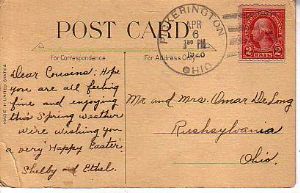 POST CARD
For Correspondence
For Address Only
PICKERINGTON
APR
6
PM
OHIO
CENTS
Dear Cousins: Hope
you are all feeling
fine and enjoying
this Spring weather
We're wishing you
a very "Happy Easter".
Shelby and Ethel.
Mr and Mrs. Omar DeLong
Rushsylvania
Ohio.